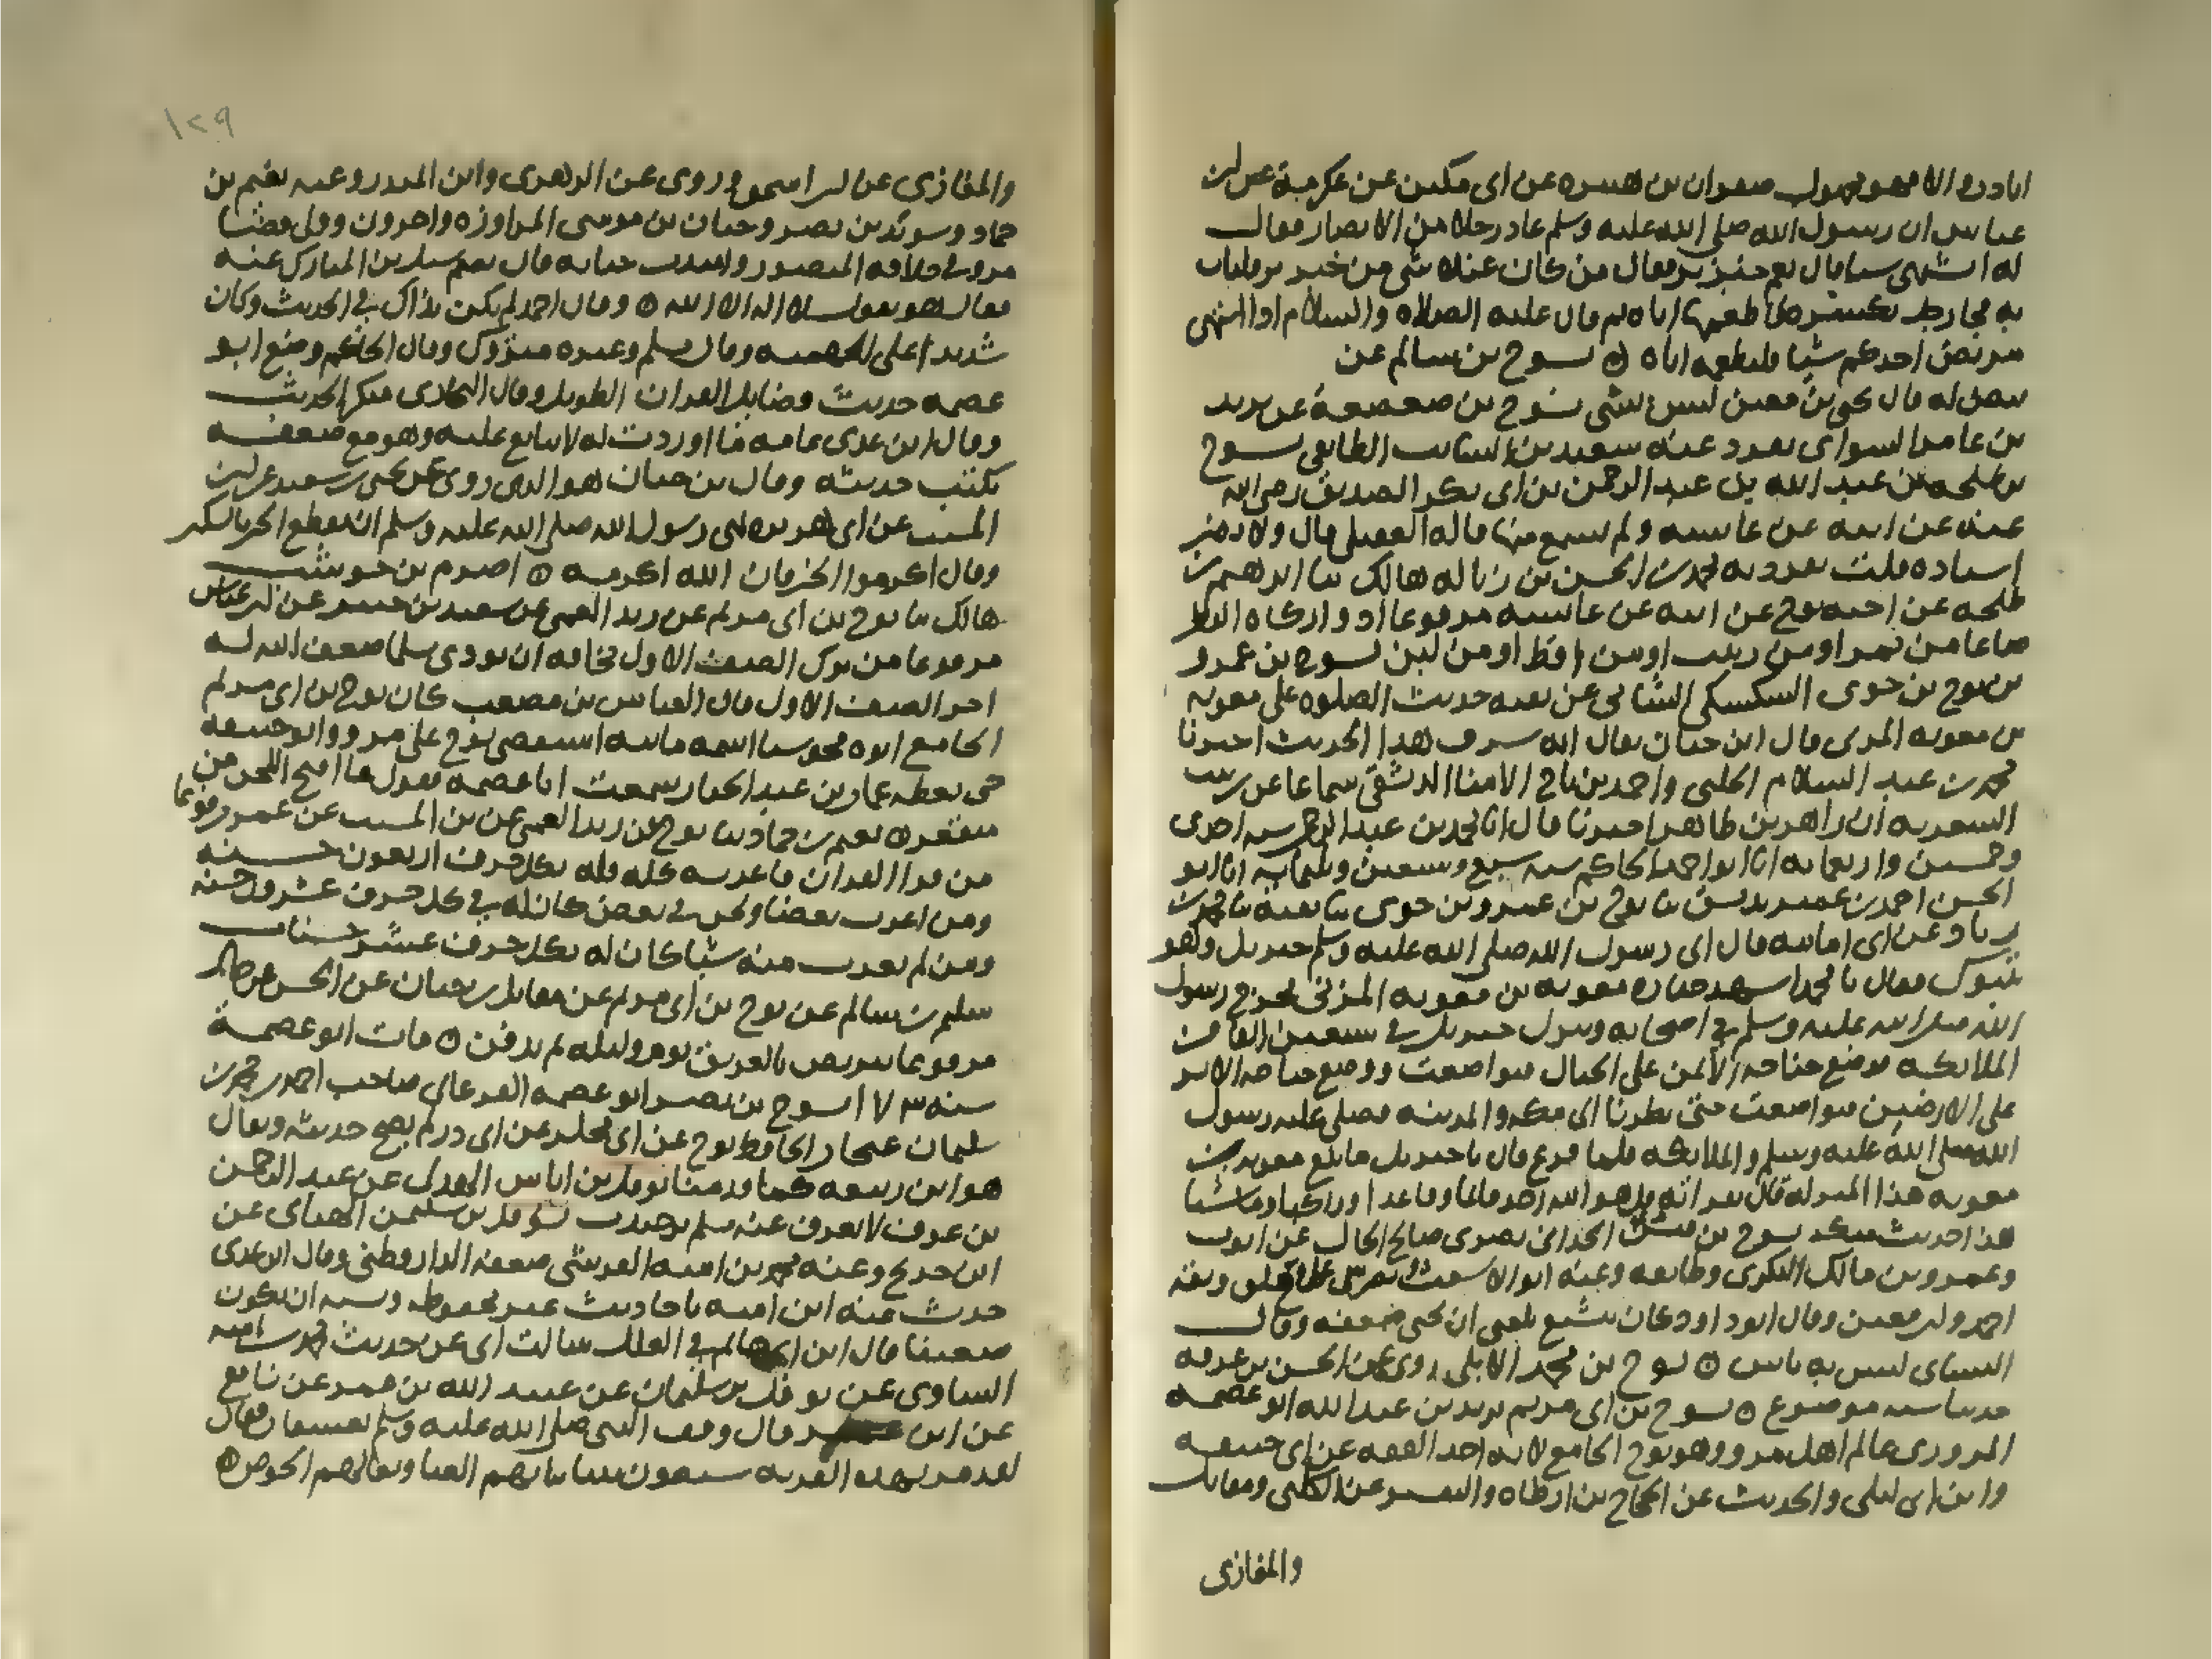 عباس ان رسول الله صلى الله عليه وسلم عاد رجلا من الانصار فقال
له اتشتهي شيا قال نعم خبز بر فقال من كان عنده شي من خبز بر فليات
به فجا رجل بكسره فاطعمها اياه ثم قال عليه الصلاه والسلام اذا اشتهى
مريض احدكم شيا فليطعمه اياه ۞ نوح بن سالم عن
قال يحيى بن معين ليس بشي نوح بن صعصعة عن يزيد
بن عامر السواى تفرد عنه سعيد بن السائب الطايفي نوح
بن طلحه بن عبد الله بن عبد الرحمن بن ابي بكر الصديق رضي الله
عنه عن ابيه عن عايشه ولم يسمع منها قاله العقيلي قال ولا
اسناده قلت تفرد به محمد بن الحسن بن زباله هالك ثنا ابرهيم بن
طلحه عن اخيه نوح عن ابيه عن عايشه مرفوعا ادوا زكاه الفطر
صاعا من تمر او من زبيب او من اقط او من لبن نوح بن عمرو
بن نوح بن حوى السكسكي الشامى عن بقيه حديث الصلوه على معويه
بن معويه المزنى قال ابن حبان يقال انه سرق هذا الحديث اخبرنا
محمد بن عبد السلام الحلبي واحمد بن تاج الامنا الدمشقي سماعا عن زينب
الشعريه ان زاهر بن طاهر اخبرنا قال انا محمد بن عبد الرحمن سنه احدى
وخمسين واربعمايه انا ابو احمد الحاكم سنه سبع وسبعين وثلثمايه انا ابو
الحسن احمد بن عمير بدمشق ثنا نوح بن عمرو بن حوى ثنا بقيه ثنا محمد بن
زياد عن ابي امامه قال اتى رسول الله صلى الله عليه وسلم جبريل وهو
بتبوك فقال يا محمد اشهد جنازه معويه بن معويه المزنى فخرج رسول
الله صلى الله عليه وسلم في اصحابه ونزل جبريل في سبعين الفا من
الملايكه فوضع جناحه الايمن على الجبال فتواضعت ووضع جناحه الايسر
على الارضين فتواضعت حتى نظرنا الى مكه والمدينه فصلى عليه رسول
الله صلى الله عليه وسلم والملايكه فلما فرغ قال يا جبريل ما بلغ معويه بن
معويه هذا المنزله قال بقراته قل هو الله احد قايما وقاعدا وراكبا وماشيا
هذا حديث منكر نوح بن الحدانى بصرى صالح الحال عن ايوب
وعمرو بن مالك النكرى وطايفه وعنه ابو الاشعث ونصر بن علي وخلق وثقه
احمد وابن معين وقال ابو داود كان يتشيع بلغني ان يحيى ضعفه وقال
النساى ليس به باس ۞ نوح بن محمد الايلي روى عن الحسن بن عرفه
حديثا شبه موضوع ۞ نوح بن ابي مريم يزيد بن عبد الله ابو عصمه
المروزى عالم اهل مرو وهو نوح الجامع لانه اخذ الفقه عن ابي حنيفه
وابن ابي ليلى والحديث عن الحجاج بن ارطاه والتفسير عن الكلبي ومقاتل
والمغازى
١٢٩
والمغازى عن ابن اسحق وروى عن الزهرى وابن المنكدر وعنه نعيم بن
حماد وسويد بن نصر وحبان بن موسى المراوزه واخرون وولي قضا
مرو في خلافه المنصور وامتدت حياته قال نعيم سيل بن المبارك عنه
فقال هو يقول لا اله الا الله ۞ وقال احمد لم يكن بذاك في الحديث وكان
شديدا على الجهميه وقال مسلم وغيره متروك وقال الحاكم وضع ابو
عصمه حديث فضايل القران الطويل وقال البخارى منكر الحديث
وقال ابن عدى عامه ما اوردت له لا يتابع عليه وهو مع ضعفه
يكتب حديثه وقال بن حبان هو الذى روى عن يحيى بن سعيد عن ابن
المسيب عن ابي هريره نهى رسول الله صلى الله عليه وسلم ان يقطع الخبز بالسكين
وقال اكرموا الخبز فان الله اكرمه ۞ اصرم بن حوشب
هالك ثنا نوح بن ابي مريم عن زيد العمي عن سعيد بن جبير عن ابن عباس
مرفوعا من ترك الصف الاول مخافه ان يوذى مسلما ضعف الله له
اجر الصف الاول قال العباس بن مصعب كان نوح بن ابي مريم
الجامع ابوه مجوسيا اسمه مابنه استقضي نوح على مرو وابو حنيفه
حي عمار بن عبد الجبار سمعت ابا عصمه يقول ما اقبح اللحن من
متقعر ۞ نعيم بن حماد ثنا نوح عن زيد العمي عن بن المسيب عن عمر مرفوعا
من قرا القران فاعربه كله فله بكل حرف اربعون حسنه
ومن اعرب بعضا ولحن في بعض كان له في كل حرف عشرون حسنه
ومن لم يعرب منه شيا كان له بكل حرف عشر حسنات
سليم بن سالم عن نوح بن ابي مريم عن مقاتل بن حيان عن الحسن
مرفوعا يتربص بالغريق يوم وليله ثم يدفن ۞ مات ابو عصمة
سنه ١٧٣ نوح بن نصر ابو عصمه الفرغاني صاحب احمد بن محمد بن
سليمان غنجار الحافظ نوح عن ابي مجلز عن ابي ذر لم يصح حديثه ويقال
هو ابن ربيعه كما قدمنا نوفل بن اياس الهذلى عن عبد الرحمن
بن عوف لا يعرف عنه مسلم بن جندب نوفل بن سليمن الهناى عن
ابن جريج وعنه محمد بن اميه القرشي ضعفه الدارقطني وقال ابن عدى
حدث عنه ابن اميه باحاديث غير محفوظه ويشبه ان يكون
ضعيفا قال ابن ابي حاتم في العلل سالت ابي عن حديث محمد بن اميه
الساوى عن نوفل بن سليمان عن عبيد الله بن عمر عن نافع
عن ابن عمر قال وقف النبي صلى الله عليه وسلم بعسفان فقال
لقد مر بهذه القريه سبعون نبيا ثيابهم العبا ونعالهم الخوص ۞